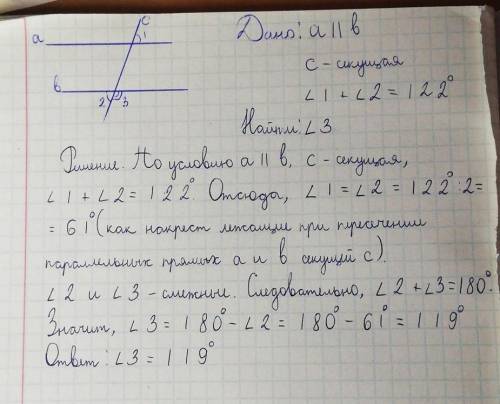 a
c
1
в
2
3
Дано: a || в
c - секущая
∠1 + ∠2 = 122°
Найти: ∠3
Решение. По условию a || в, c - секущая,
∠1 + ∠2 = 122°. Отсюда, ∠1 = ∠2 = 122° : 2 =
= 61° (как накрест лежащие при пересечении
параллельных прямых a и в секущей c).
∠2 и ∠3 - смежные. Следовательно, ∠2 + ∠3 = 180°.
Значит, ∠3 = 180° - ∠2 = 180° - 61° = 119°
Ответ: ∠3 = 119°